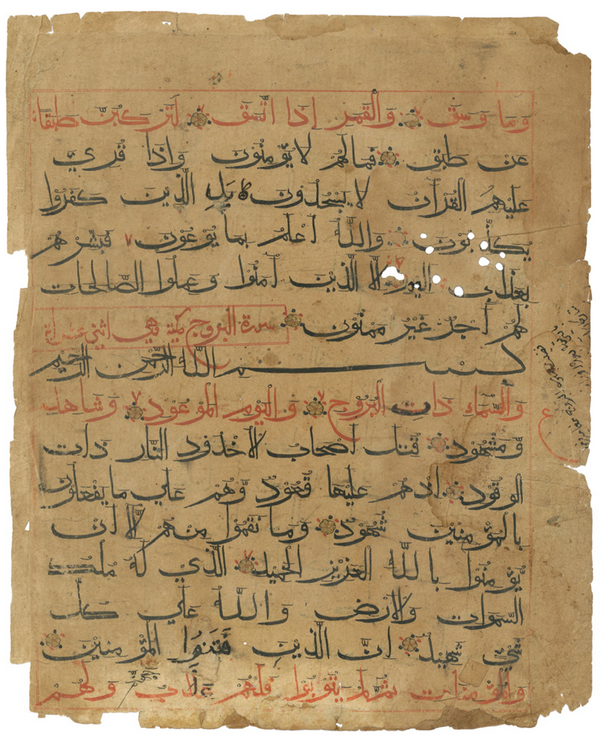 وما وسق والقمر إذا اتسق لتركبن طبقا
عن طبق فمالهم لا يؤمنون واذا قرئ
عليهم القرآن لا يسجدون بل الذين كفروا
يكذبون والله اعلم بما يوعون فبشرهم
بعذاب اليم الا الذين آمنوا وعملوا الصالحات
لهم اجر غير ممنون سورة البروج مكية هي اثنى
بسم الله الرحمن الرحيم
والسماء ذات البروج واليوم الموعود وشاهد
ع
ومشهود قتل اصحاب الاخدود النار ذات
الوقود اذهم عليها قعود وهم على ما يفعلون
بالمؤمنين شهود وما نقموا منهم الا ان
يؤمنوا بالله العزيز الحميد الذي له ملك
السموات والارض والله على كل
شيء شهيد ان الذين فتنوا المؤمنين
والمؤمنات ثم لم يتوبوا فلهم عذاب ولهم